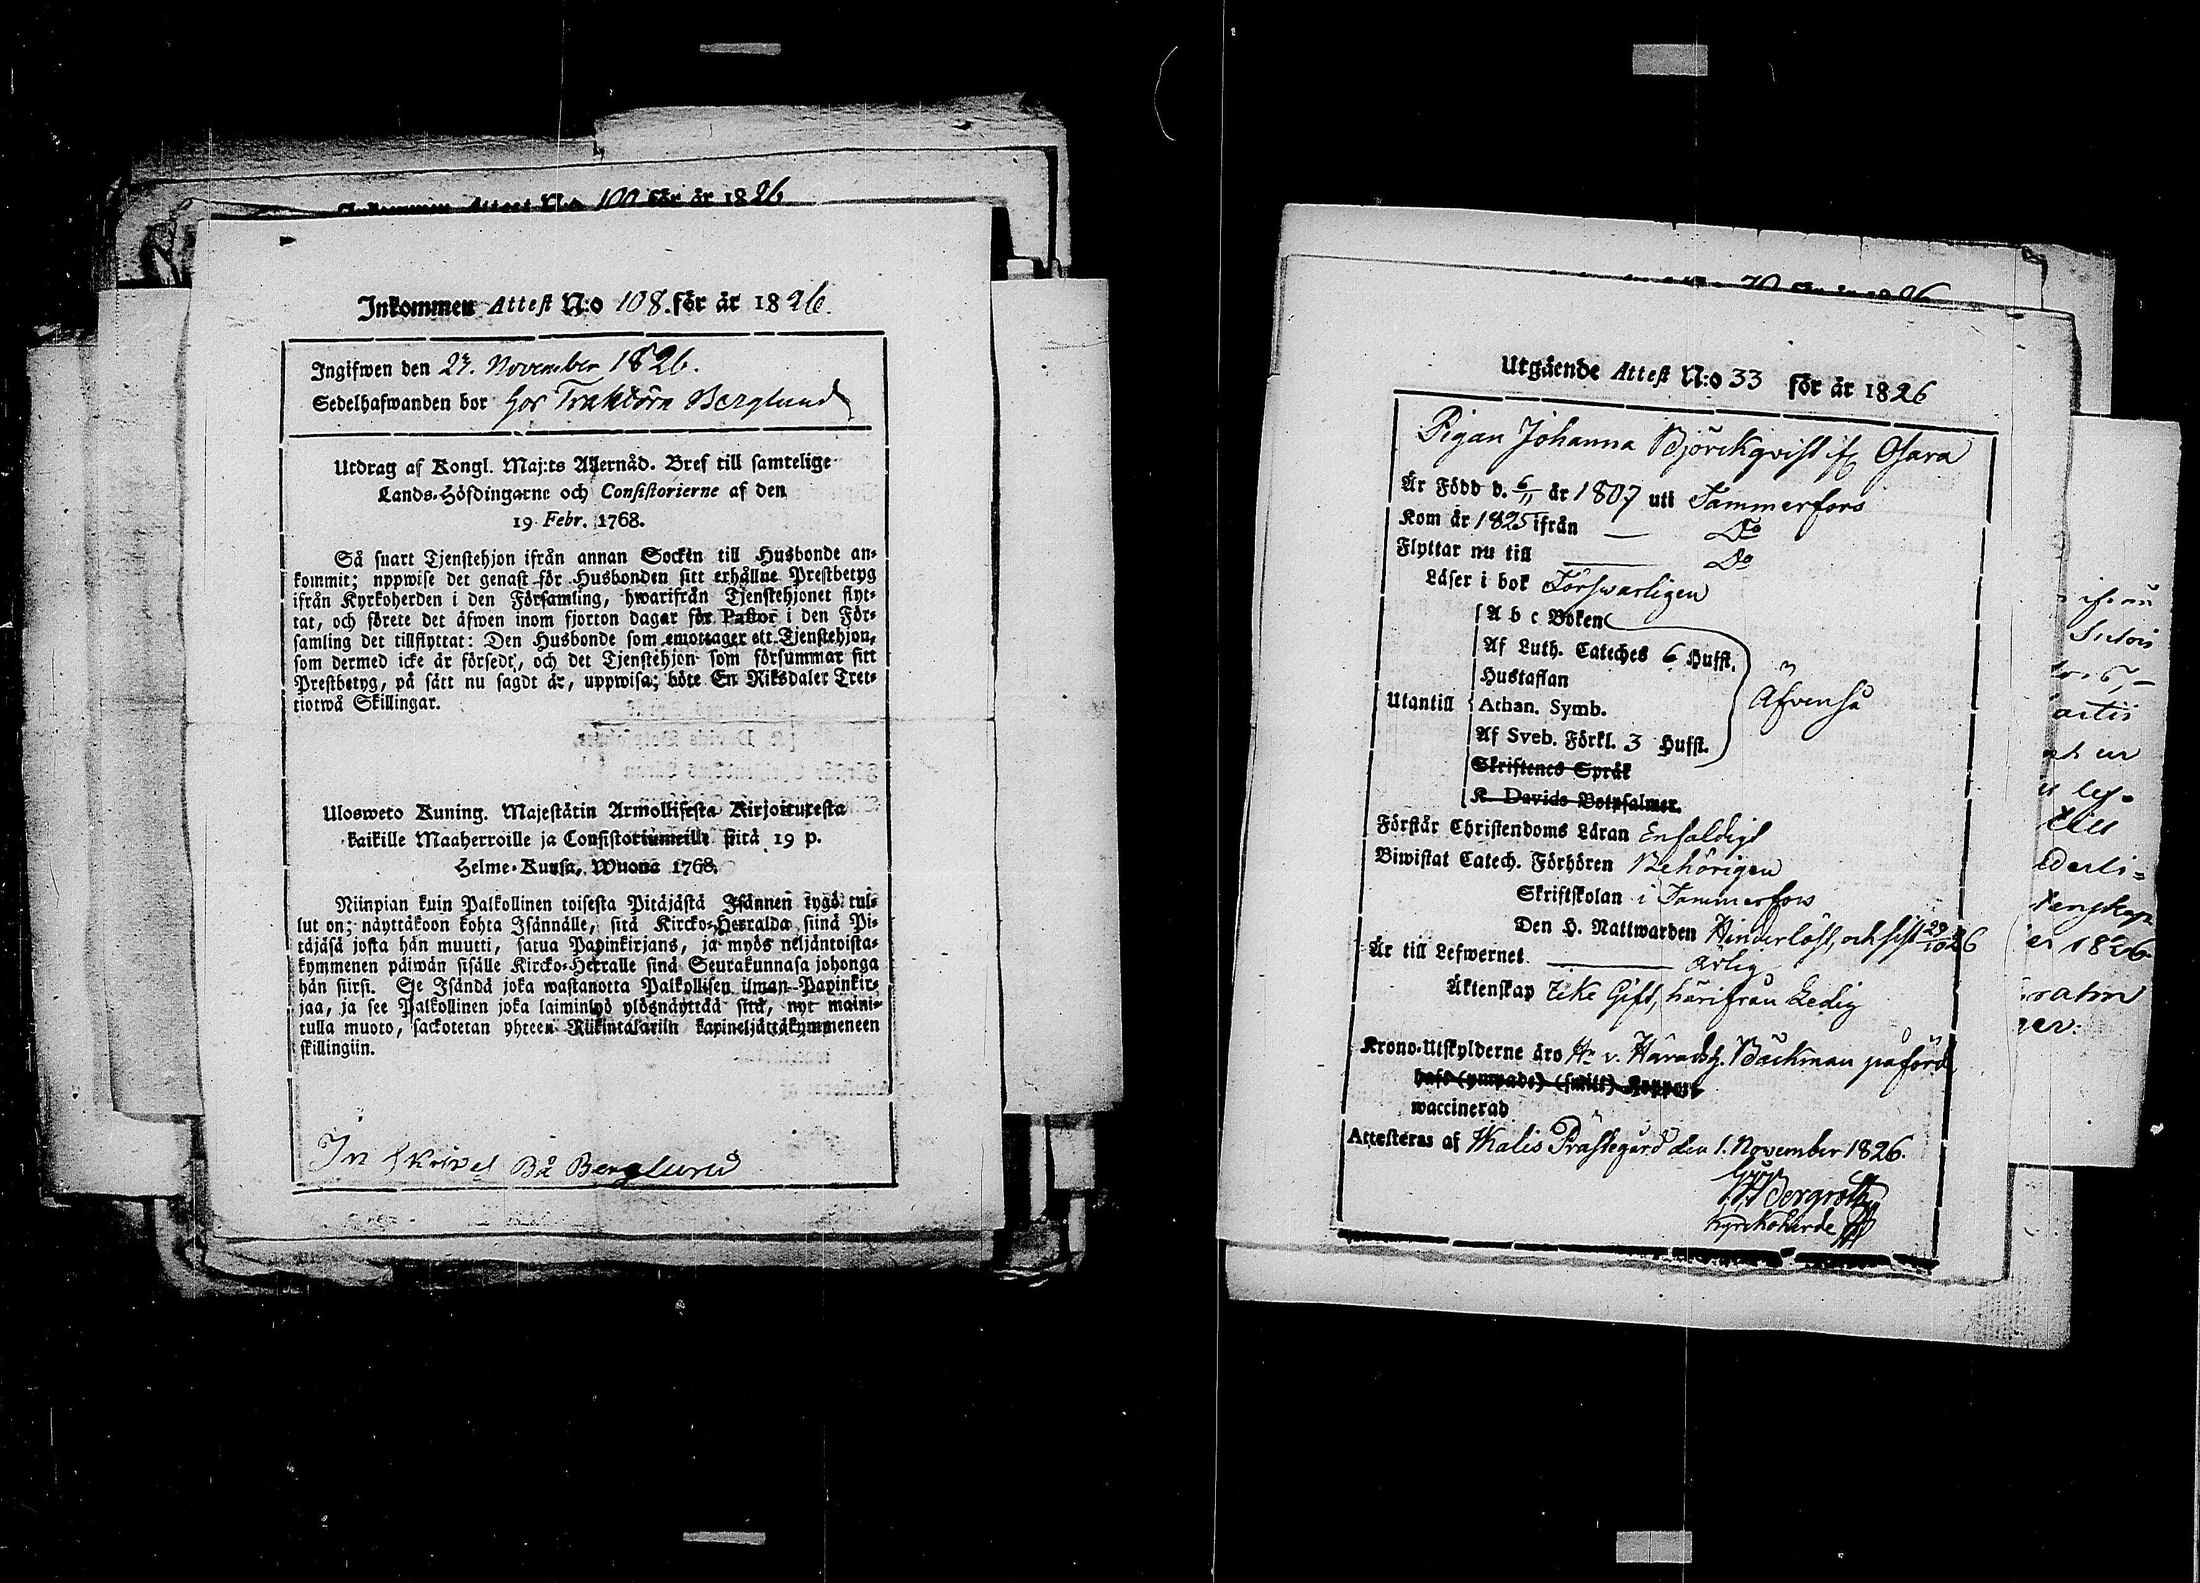 Inkommen Attest N:o 100 för år 1826
Inkommen Attest N:o 108. för år 1826.
Ingifwen den 27. November 1826.
Sedelhafwanden bor hos Traktörn Berglund
Utdrag af Kongl. Maj:ts Allernåd. Bref till samtelige
Lands-Höfdingarne och Consistorierne af den
19 Febr. 1768.
Så snart Tjenstehjon ifrån annan Socken till Husbonde an-
kommit; uppwise det genast för Husbonden sitt erhållne Prestbetyg
ifrån Kyrkoherden i den Församling, hwarifrån Tjenstehjonet flyt-
tat, och förete det äfwen inom fjorton dagar för Pastor i den För-
samling det tillflyttat: Den Husbonde som emottager ett Tjenstehjon,
som dermed icke är försedt, och det Tjenstehjon som försummar sitt
Prestbetyg, på sätt nu sagdt är, uppwisa; böte En Riksdaler Tret-
tiotwå Skillingar.
Ulosweto Kuning. Majestätin Armollisesta Kirjoituxesta
kaikille Maaherroille ja Consistoriumeille siitä 19 p.
Helme-Kuusa, Wuona 1768.
Niinpian kuin Palkollinen toisesta Pitäjästä Isännen tygö tul-
lut on; näyttäkoon kohta Isännälle, sitä Kircko-Herralda siinä Pi-
täjäsä josta hän muutti, saatua Papinkirjans, ja myös neljäntoista-
kymmenen päiwän sisälle Kircko-Herralle sinä Seurakunnasa johonga
hän siirsi. Se Isändä joka wastanotta Palkollisen ilman Papinkir-
jaa, ja see Palkollinen joka laiminlyö ylösnäyttää sitä, nyt maini-
tulla muoto, sackotetan yhteen Riikintalariin kaxineljättäkymmeneen
skillingiin.
In skrivel Bå Berglund
70 för år 1826
Utgående Attest N:o 33 för år 1826
Pigan Johanna Björckqvist
Är Född d. 6/11 år 1807 uti Tammerfors
Kom år 1825 ifrån — Do
Flyttar nu till — Do
Läser i bok Försvarligen
A b c Boken
Af Luth. Cateches 6 Hufst.
Hustaflan
Utantill Athan. Symb. Äfvenså
Af Sveb. Förkl. 3 Hufst.
Skriftenes Språk
K. Davids Botpsalmer.
Förstår Christendoms Läran Enfaldigt
Biwistat Catech. Förhören Behörigen
Skriftskolan i Tammerfors
Den H. Nattwarden Hinderlöst, och sist 29/10 26
Är till Lefwernet — ärlig
Äktenskap icke Gift, härifrån Ledig
Krono-Utskylderne äro Hr v. Häradsh. Bäckman påförde
haft (ympade) (smitt) Koppor
waccinerad
Attesteras af Messuby Prästegård den 1. November 1826.
Bergroth
Kyrckoherde
ifrån
till
1826